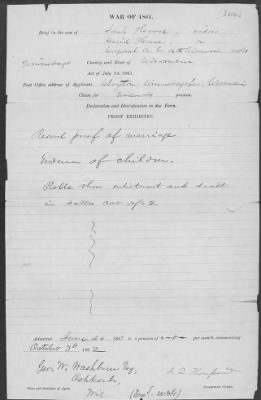 WAR OF 1861.
Brief in the case of Sarah widow
David a
Corporal Co. C 14th Wisconsin Vols
Winnebago County and State of Wisconsin
Act of July 14, 1862.
Post Office address of Applicant: Winnebago Co., Wisconsin
Claim for Widow's pension.
Declaration and Identification in due Form.
PROOF EXHIBITED.
Record proof of marriage
Evidence of children.
Rolls show enlistment and death
in battle Oct
Admitted June 20 1863 to a pension of $ 8 per month, commencing
October 3d 1862
Geo. W. Washburn Esq.
Oshkosh,
Wis
Name and Residence of Agent.
Examining Clerk.